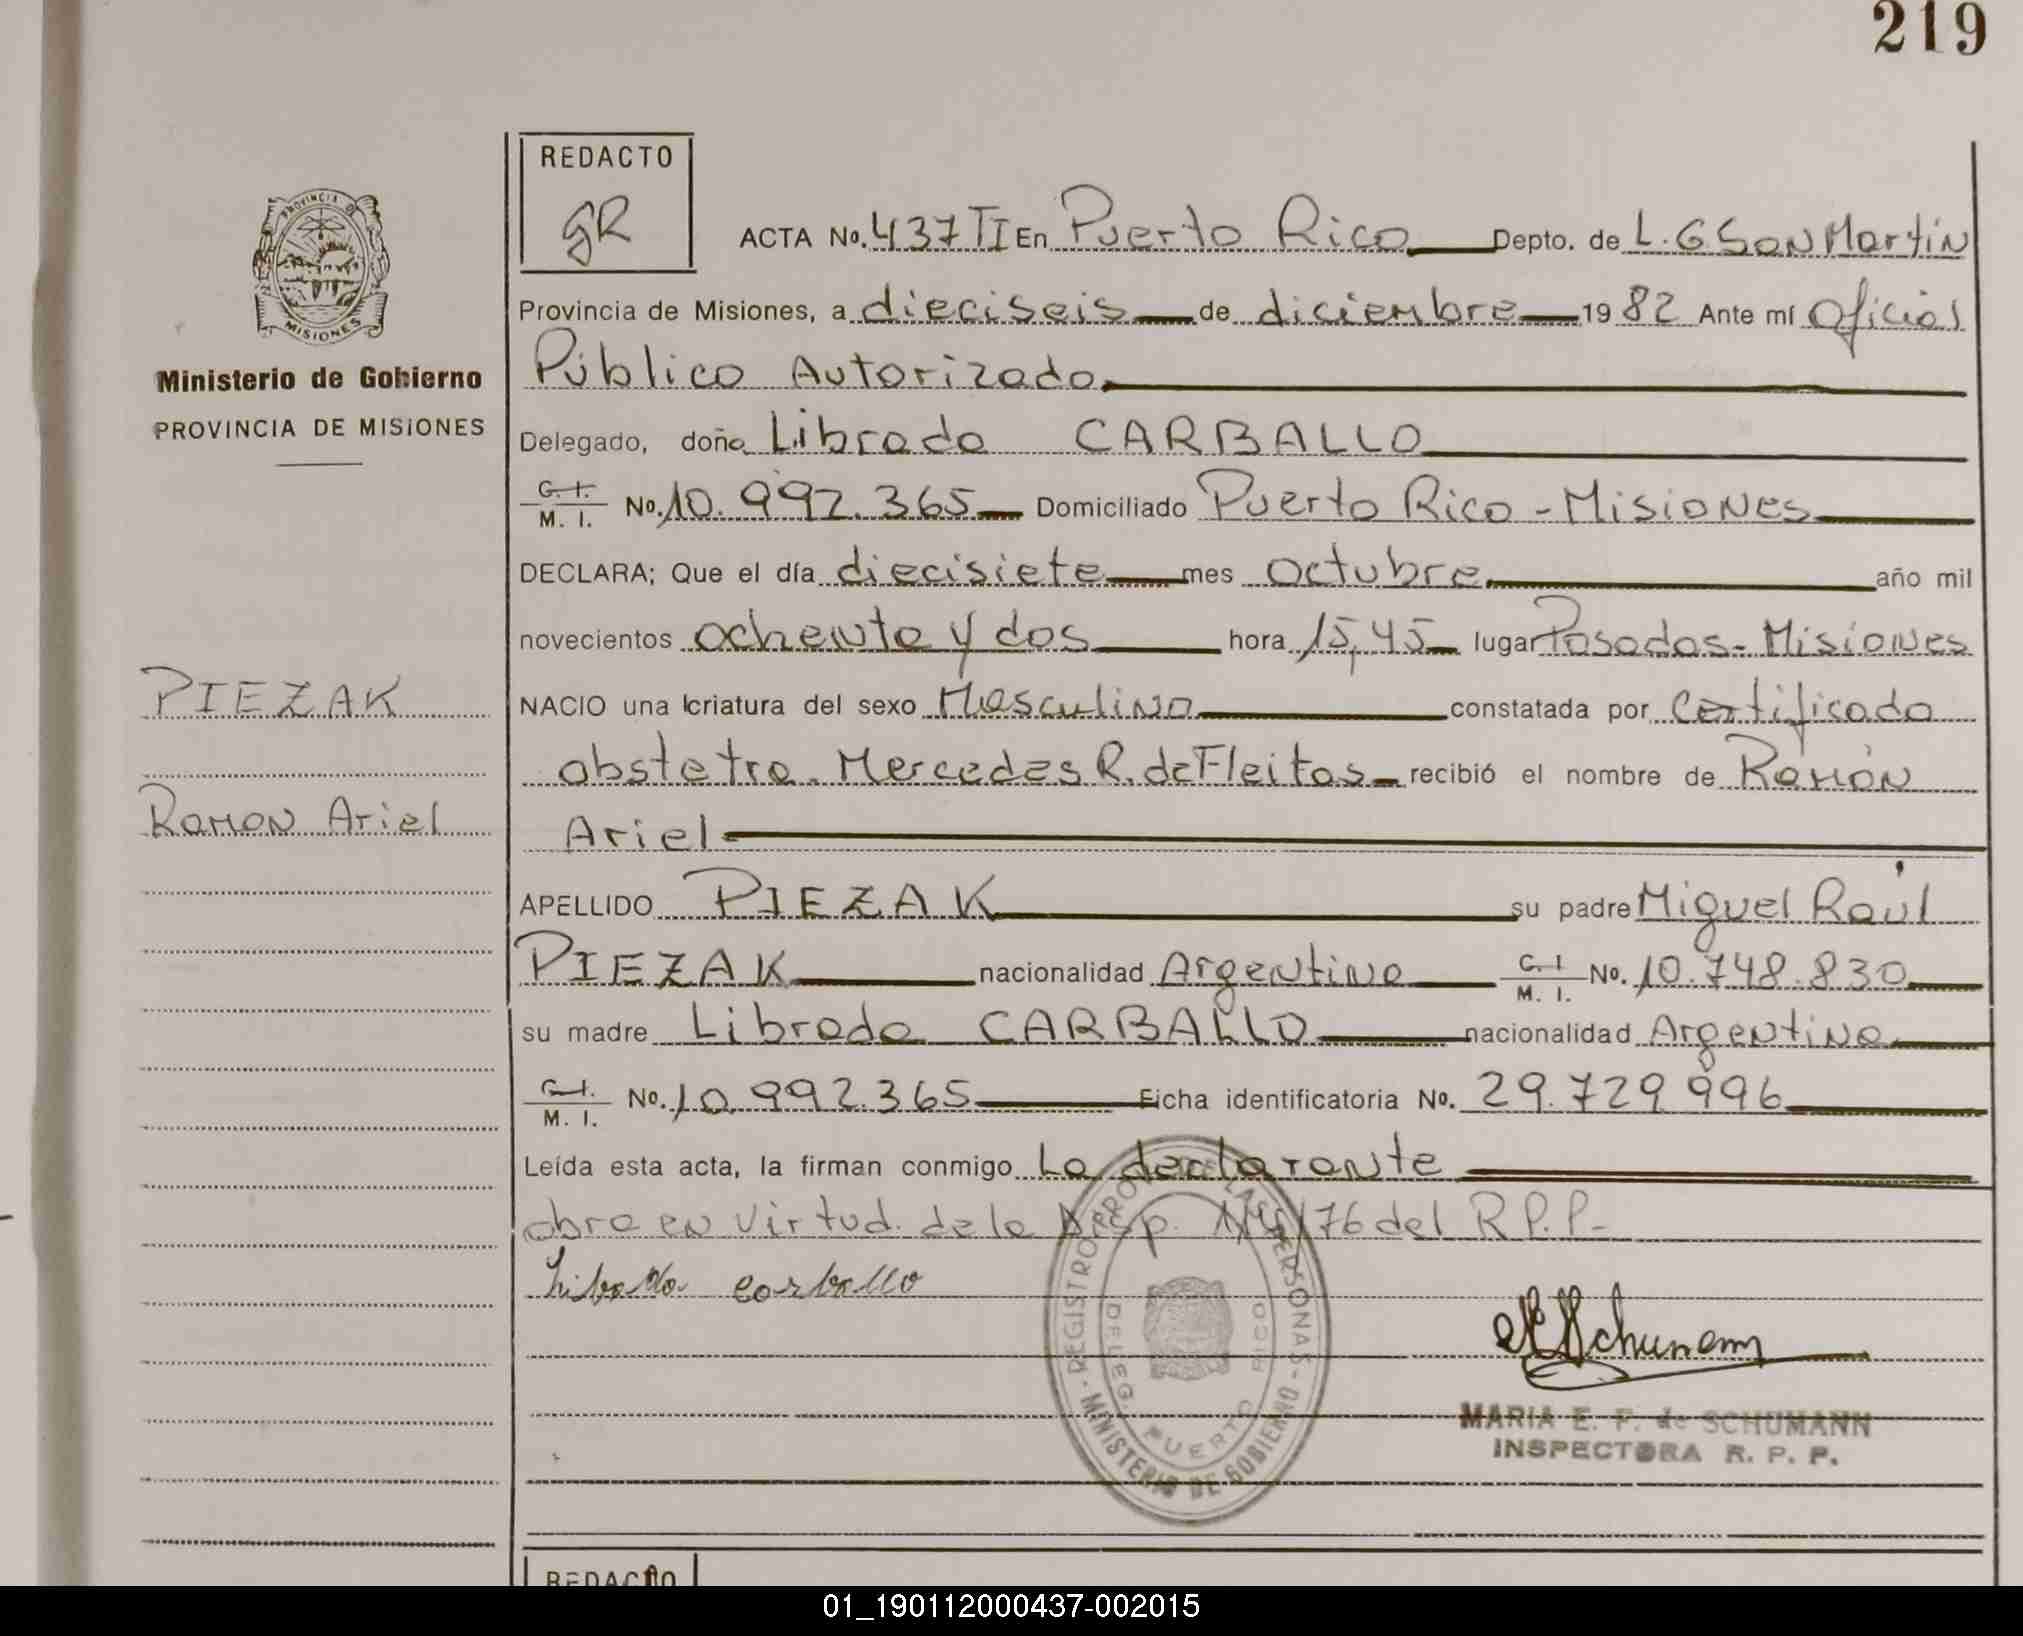 219
REDACTO
gR
ACTA No. 437 TI En Puerto Rico Depto. de L. G San Martin
Provincia de Misiones, a dieciseis de diciembre 1982 Ante mí Oficial
Público Autorizado
Ministerio de Gobierno
PROVINCIA DE MISIONES
PROVINCIA DE
MISIONES
Delegado, doña Librada CARBALLO
C. I. M. I. No. 10.992.365 Domiciliado Puerto Rico - Misiones
DECLARA; Que el día diecisiete mes octubre año mil
novecientos ochenta y dos hora 15,45 lugar Posadas - Misiones
NACIO una criatura del sexo Masculino constatada por Certificado
obstetra. Mercedes R. de Fleitas recibió el nombre de Ramón
Ariel
PIEZAK
Ramon Ariel
APELLIDO PIEZAK su padre Miguel Raúl
PIEZAK nacionalidad Argentina C. I. M. I. No. 10.748.830
su madre Librada CARBALLO nacionalidad Argentina
C. I. M. I. No. 10.992.365 Ficha identificatoria No. 29.729.996
Leída esta acta, la firman conmigo La declarante
obra en virtud. de la Disp. /76 del R.P.P-
Librada Carballo
REGISTRO PROV. DE LAS PERSONAS - MINISTERIO DE GOBIERNO
DELEG. PUERTO RICO
Schumann
MARIA E. F. de SCHUMANN
INSPECTORA R. P. P.
REDACTO
01_190112000437-002015